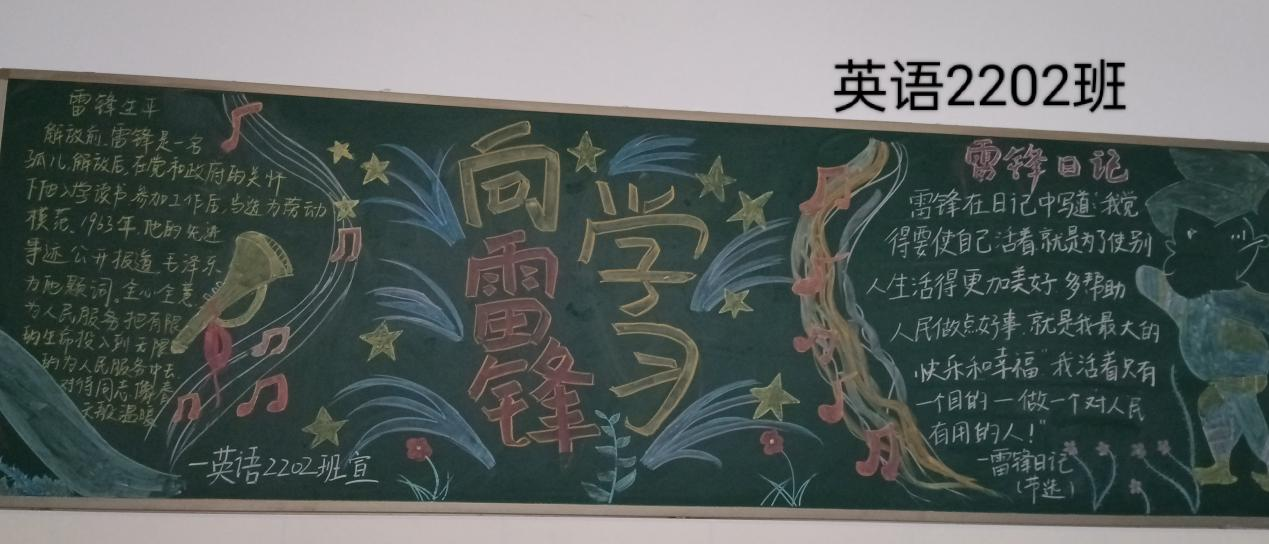 英语2202班
雷锋生平
解放前,雷锋是一名
孤儿,解放后,在党和政府的关怀
下他入学读书,参加工作后,当选为劳动
模范,1963年,他的先进
事迹公开报道,毛泽东
为他题词。全心全意
为人民服务,把有限
的生命投入到无限
的为人民服务中去
对待同志像春
天般温暖
一英语2202班宣
向雷锋
学习
雷锋日记
雷锋在日记中写道:"我觉
得要使自己活着,就是为了使别
人生活得更加美好,多帮助
人民做点好事,就是我最大的
快乐和幸福"我活着只有
一个目的一做一个对人民
有用的人!"
一雷锋日记
(节选)